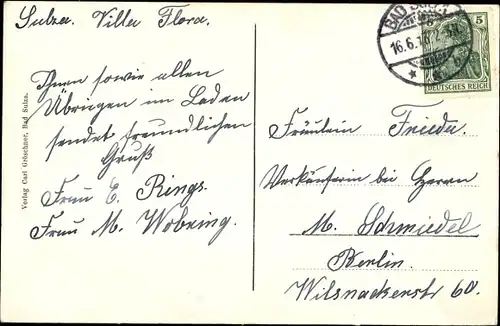 Sulza. Villa Flora.
Ihnen sowie allen
Übrigen im Laden
sendet freundlichen
Gruß
Frau E. Rings.
Frau M. Wobring.
Verlag Carl Gröschner, Bad Sulza.
BAD SULZA
16.6.
5
DEUTSCHES REICH
Fräulein Frieda
Verkäuferin bei Herrn
M. Schmiedel
Berlin.
Wilsnackerstr 60.